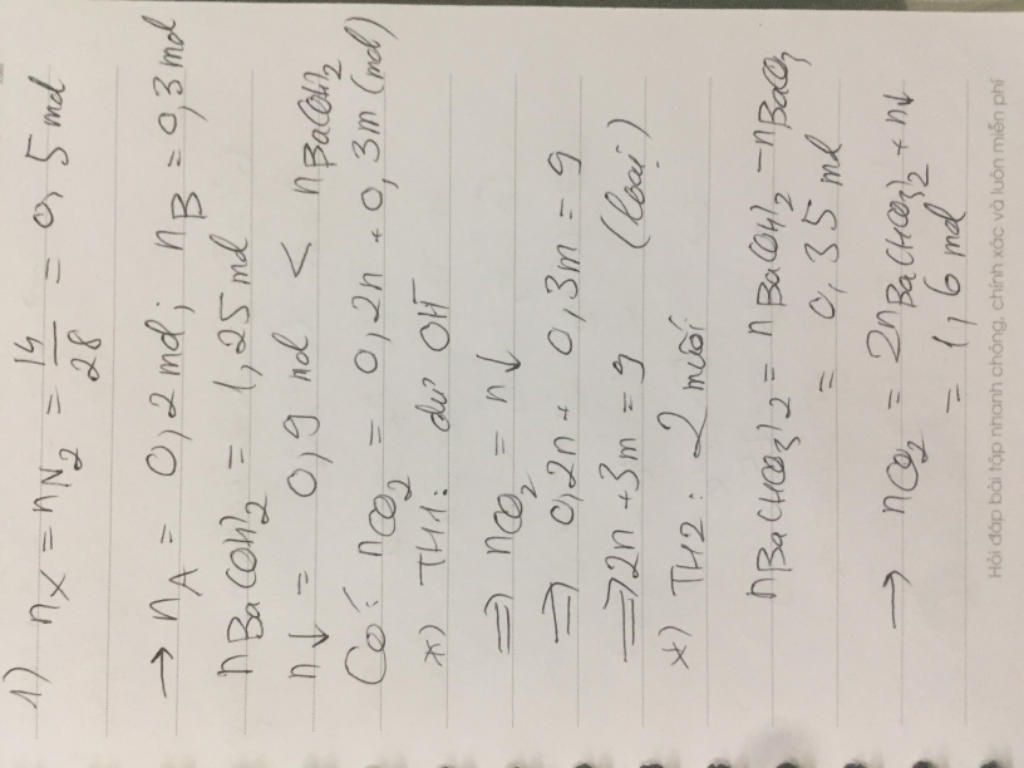 1) nX = nN2 = 14/28 = 0,5 mol
→ nA = 0,2 mol; nB = 0,3 mol
nBa(OH)2 = 1,25 mol
n↓ = 0,9 mol < nBa(OH)2
Có: nCO2 = 0,2n + 0,3m (mol)
*) TH1: dư OH⁻
⇒ nCO2 = n↓
⇒ 0,2n + 0,3m = 9
⇒ 2n + 3m = 9 (loại)
*) TH2: 2 muối
nBa(HCO3)2 = nBa(OH)2 - nBaCO3
= 0,35 mol
→ nCO2 = 2nBa(HCO3)2 + n↓
= 1,6 mol
Hỏi đáp bài tập nhanh chóng, chính xác và luôn miễn phí